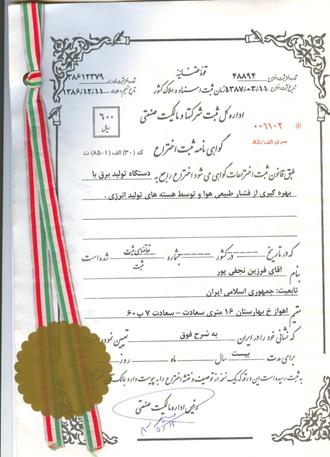 قوه قضائیه
۳۸۶۱۲۳۷۹
۴۸۸۹۴
۱۳۸۶/۱۲/۱۱
۱۳۸۷/۰۳/۱۱
سازمان ثبت اسناد و املاک کشور
اداره کل ثبت شرکتها و مالکیت صنعتی
۶۰۰
ریال
۰۰۶۱۰۲
سری الف/۸۵
گواهی نامه ثبت اختراع
کد (۳۰) الف (۱-۸۵) ث
طبق قانون ثبت اختراعات گواهی می شود اختراع راجع به دستگاه تولید برق با
بهره گیری از فشار طبیعی هوا و توسط هسته های تولید انرژی.
که در تاریخ ----- در کشور ----- بشماره ----- تقاضای ثبت شده است
ثبت
آقای فرزین نجفی پور
تابعیت: جمهوری اسلامی ایران
مقیم اهواز خ بهارستان ۱۶ متری سعادت - سعادت ۷ پ ۶۰
که نشانی خود را در ایران به شرح فوق تعیین نموده
برای مدت بیست سال ماه روز
به ثبت رسیده است این ورقه که یک نسخه از توصیف و نقشه اختراع را به پیوست دارد
رئیس اداره مالکیت صنعتی